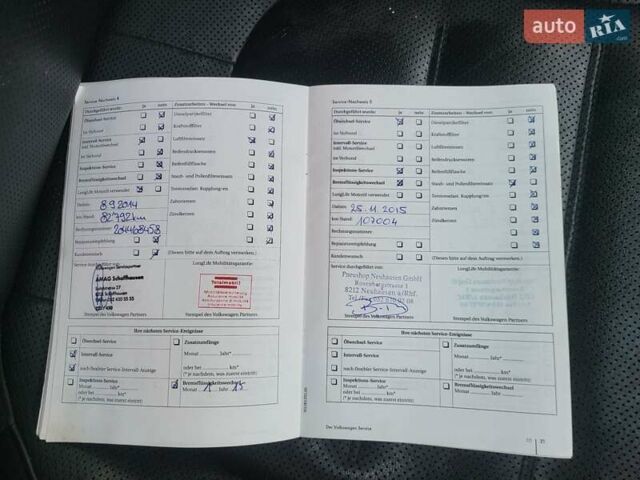 auto RIA .com
Service-Nachweis 4
Durchgeführt wurde: ja nein Zusatzarbeiten - Wechsel von: ja nein
Ölwechsel-Service Dieselpartikelfilter
im Verbund Kraftstofffilter
Intervall-Service Luftfiltereinsatz
inkl. Motorölwechsel
im Verbund Reifendrucksensoren
Inspektions-Service Reifenfüllflasche
Bremsflüssigkeitswechsel Staub- und Pollenfiltereinsatz
LongLife Motoröl verwendet
Datum: 8.9.2014 Zahnriemen
km-Stand: 82792km Zündkerzen
Rechnungsnummer: 204468458
Reparaturempfehlung
Kundenwunsch (Diesen bitte auf dem Auftrag vermerken.)
Service durchgeführt von: LongLife Mobilitätsgarantie:
AMAG Schaffhausen
Totalmobil!
Stempel des Volkswagen Partners
Ihre nächsten Service-Ereignisse
Ölwechsel-Service Zusatzumfänge
Intervall-Service Monat Jahr*
nach flexibler Service-Intervall-Anzeige oder bei km*
(* je nachdem, was zuerst eintritt)
Inspektions-Service Bremsflüssigkeitswechsel
Monat Jahr* Monat 1 Jahr 15
oder bei km*
(* je nachdem, was zuerst eintritt)
Service-Nachweis 5
Durchgeführt wurde: ja nein Zusatzarbeiten - Wechsel von: ja nein
Ölwechsel-Service Dieselpartikelfilter
im Verbund Kraftstofffilter
Intervall-Service Luftfiltereinsatz
inkl. Motorölwechsel
im Verbund Reifendrucksensoren
Inspektions-Service Reifenfüllflasche
Bremsflüssigkeitswechsel Staub- und Pollenfiltereinsatz
LongLife Motoröl verwendet
Datum: 25.11.2015 Zahnriemen
km-Stand: 107004 Zündkerzen
Rechnungsnummer:
Reparaturempfehlung
Kundenwunsch (Diesen bitte auf dem Auftrag vermerken.)
Service durchgeführt von: LongLife Mobilitätsgarantie:
Pneushop Neuhausen GmbH
Rosenbergstrasse
8212 Neuhausen a/Rhf.
Stempel des Volkswagen Partners
Ihre nächsten Service-Ereignisse
Ölwechsel-Service Zusatzumfänge
Intervall-Service Monat Jahr*
nach flexibler Service-Intervall-Anzeige oder bei km*
(* je nachdem, was zuerst eintritt)
Inspektions-Service Bremsflüssigkeitswechsel
Monat Jahr* Monat Jahr
oder bei km*
(* je nachdem, was zuerst eintritt)
Der Volkswagen Service